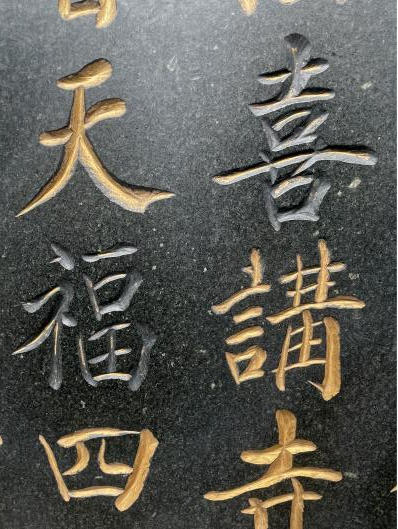 喜講寺
天福四